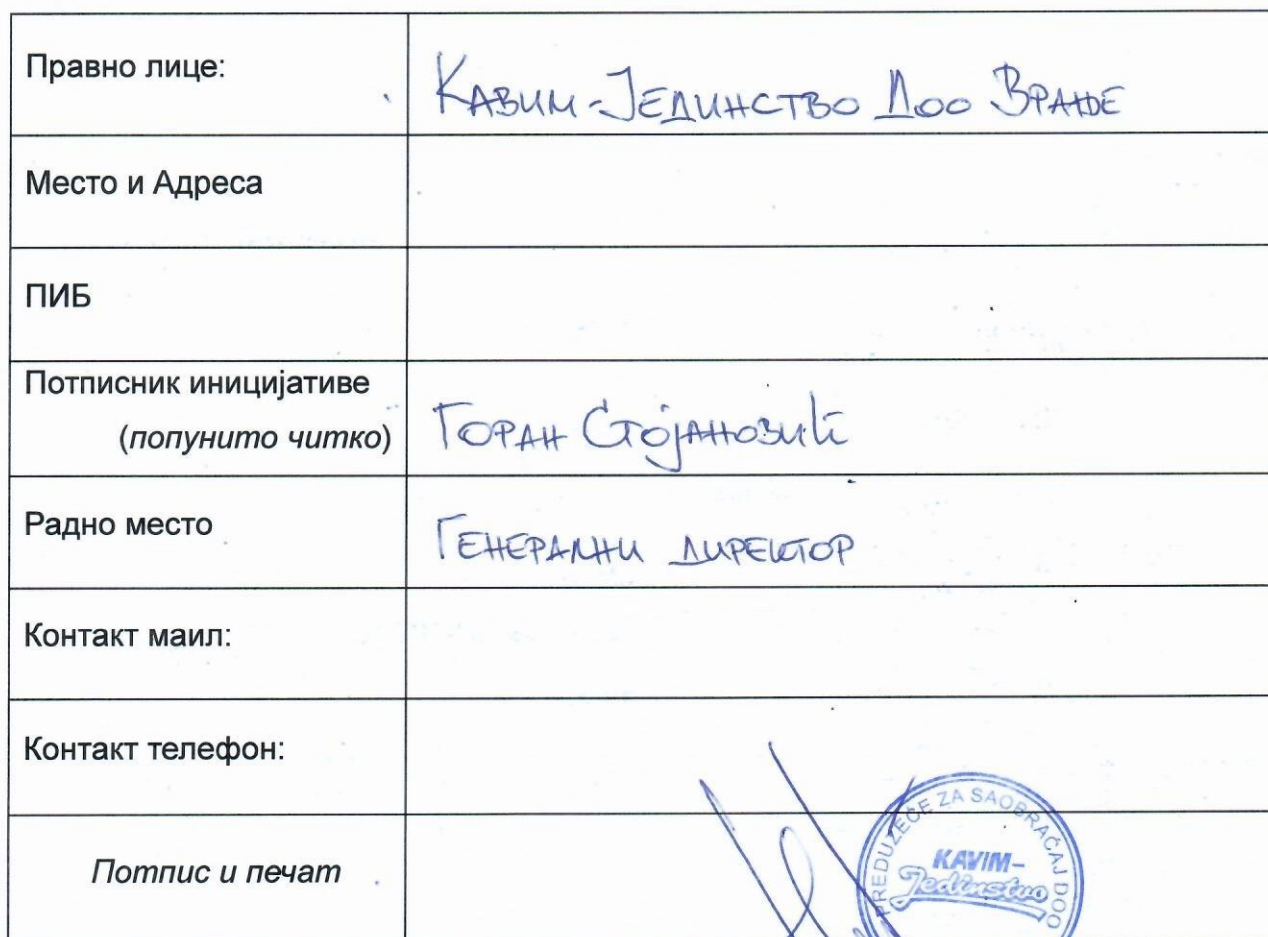 Правно лице:
Кавим-Јединство Доо Врање
Место и Адреса
ПИБ
Потписник иницијативе
(попунито читко)
Горан Стојановић
Радно место
Генерални директор
Контакт маил:
Контакт телефон:
Потпис и печат
PREDUZEĆE ZA SAOBRAĆAJ DOO
KAVIM-
Jedinstvo